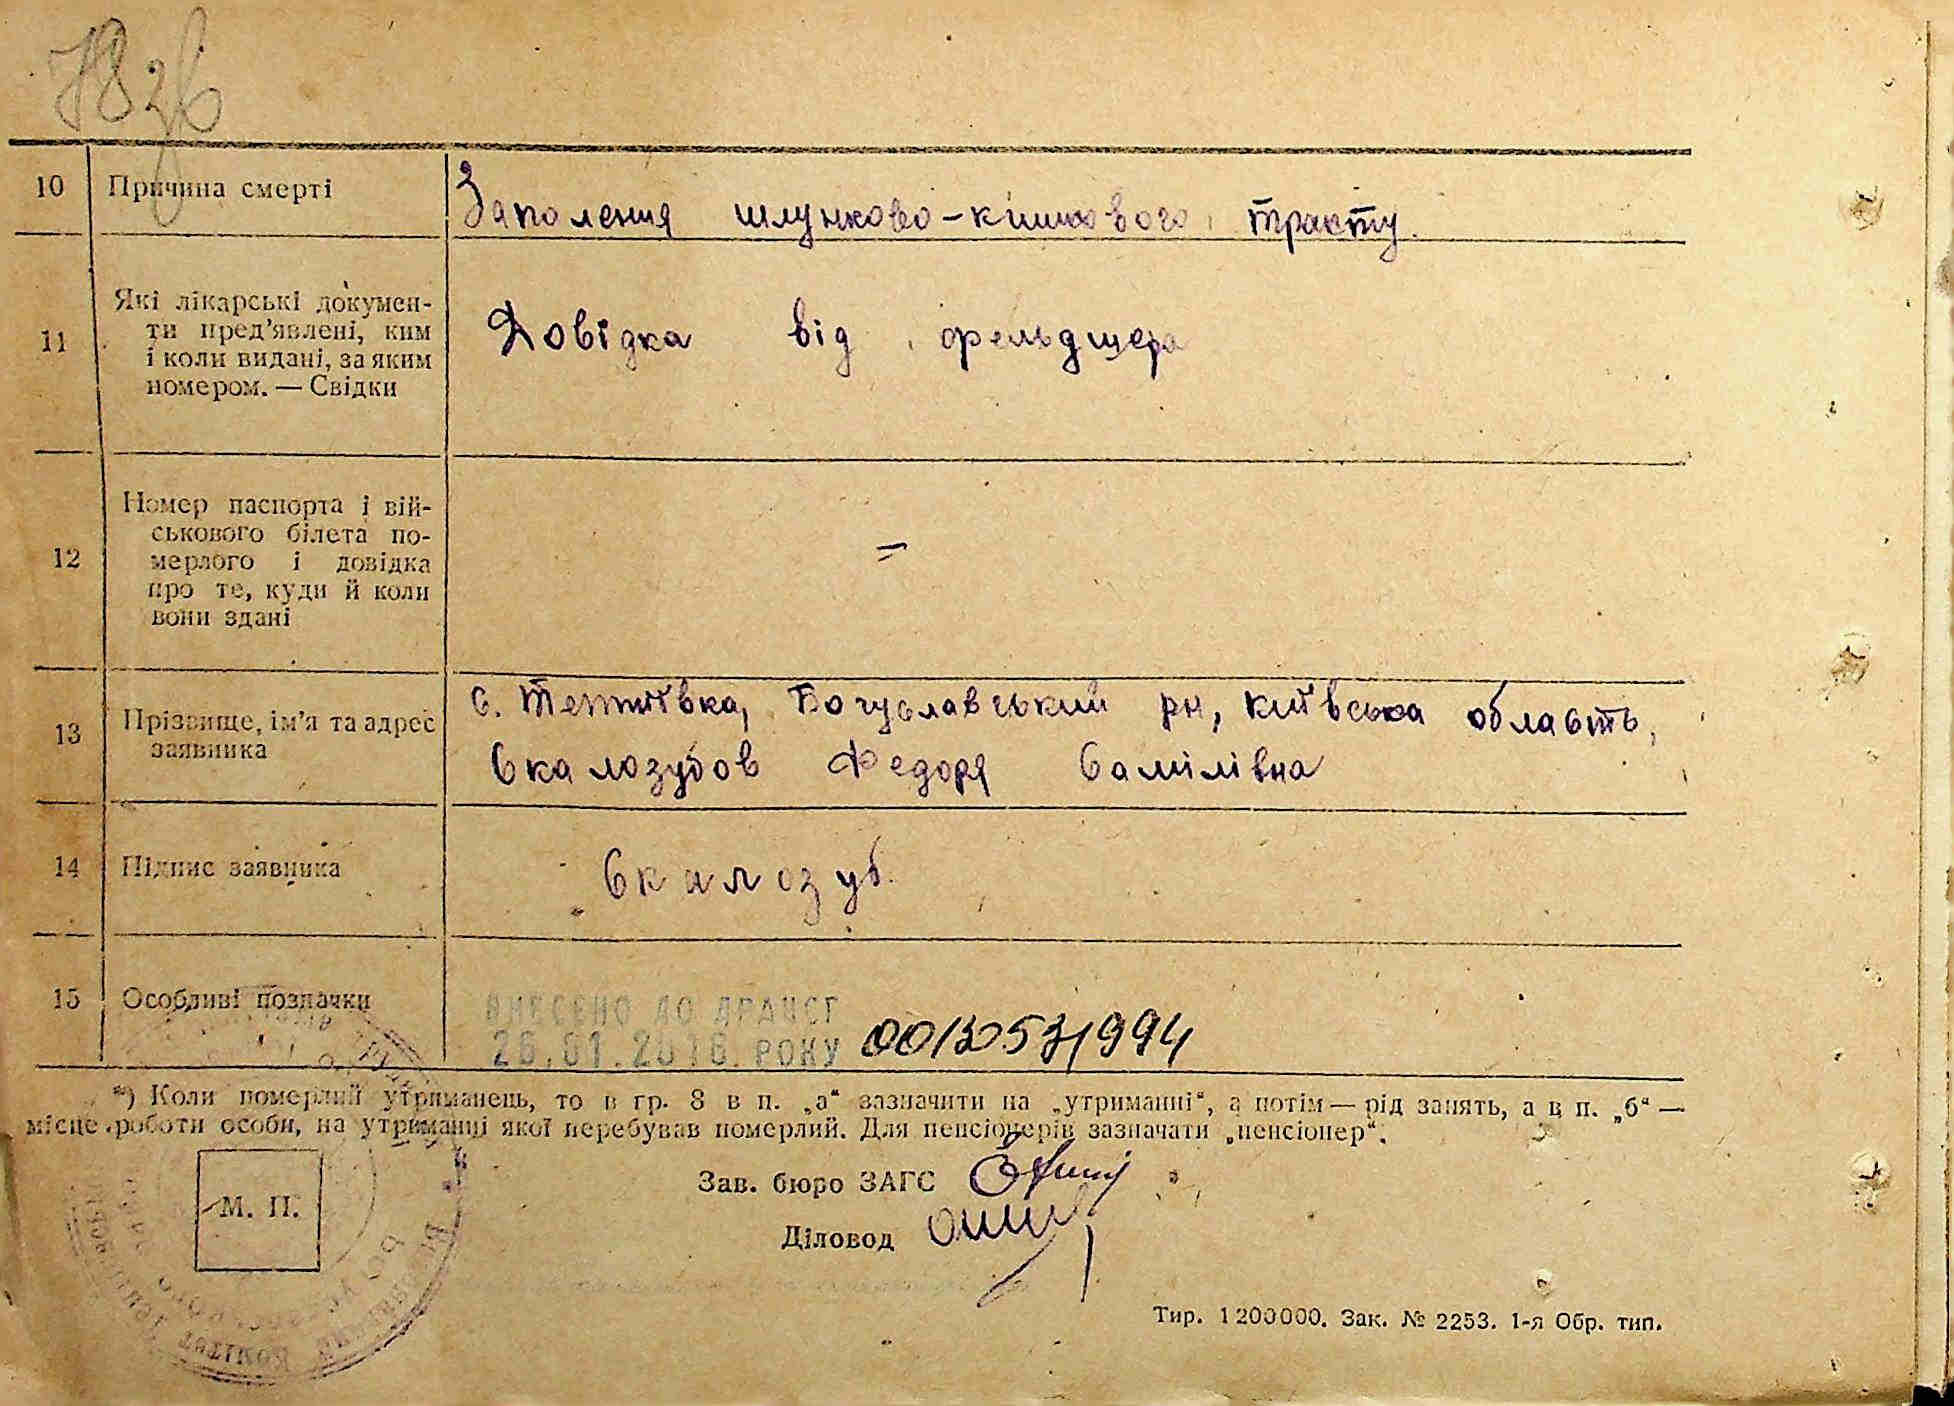 10 Причина смерті Заполення шлунково-кишкового тракту.
11 Які лікарські докумен-
ти пред'явлені, ким
і коли видані, за яким
номером. — Свідки
Довідка від фельдшера
12 Номер паспорта і вій-
ськового білета по-
мерлого і довідка
про те, куди й коли
вони здані
=
13 Прізвище, ім'я та адрес
заявника
с. Тептіївка, Богуславський рн, київська область,
Скалозубов Федоря Самілівна
14 Підпис заявника Скалозуб.
15 Особливі позначки
ВНЕСЕНО ДО ДРАЦСГ
26.01.2016 РОКУ
*) Коли померлий утриманець, то в гр. 8 в п. „а“ зазначити на „утриманні“, а потім — рід занять, а в п. „б“ —
місце роботи особи, на утриманні якої перебував померлий. Для пенсіонерів зазначати „пенсіонер“.
Зав. бюро ЗАГС
М. П.
Діловод
Тир. 1200000. Зак. № 2253. 1-я Обр. тип.